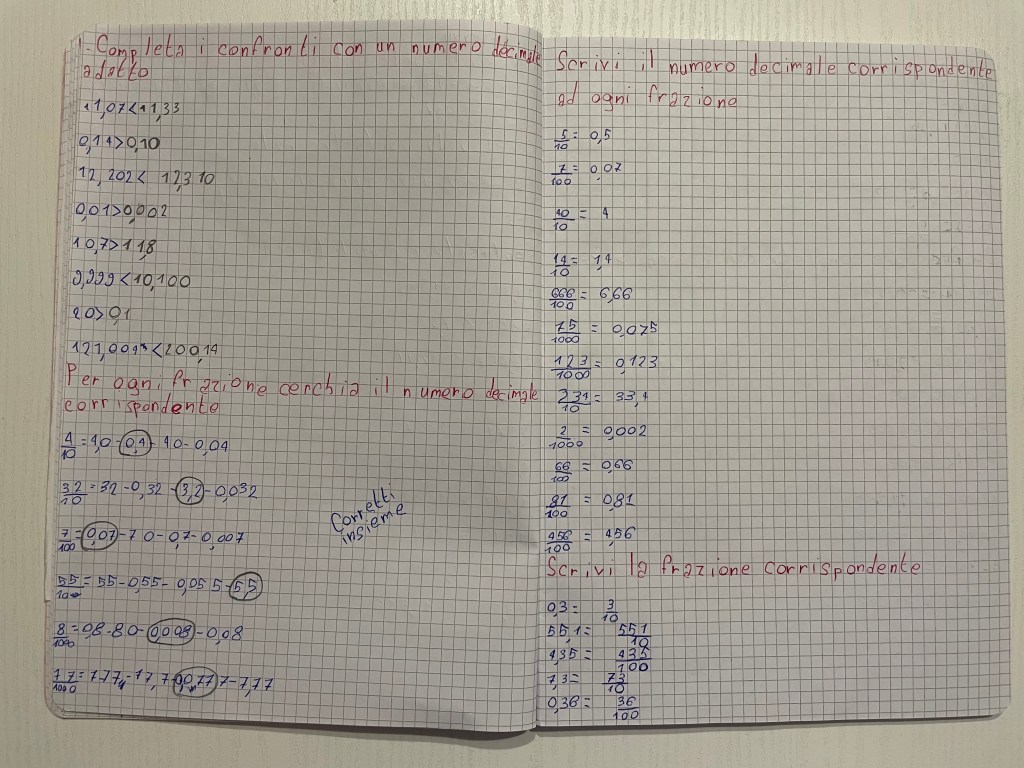 1-Completa i confronti con un numero decimale
adatto
11,07<11,33
0,11>0,10
12,202< 12,310
0,01>0,002
10,7>11,8
9,999<10,100
20>0,1
<200,14
Per ogni frazione cerchia il numero decimale
corrispondente
1/10=1,0-0,1-10-0,01
32/10=32-0,32-3,2-0,032
7/100=0,07-70-0,7-0,007
55/10=55-0,55-0,055-5,5
8/1000=0,8-80-0,008-0,08
77/1000=
7-7,77
Corretti
insieme
Scrivi il numero decimale corrispondente
ad ogni frazione
5/10= 0,5
7/100= 0,07
10/10= 1
14/10= 1,4
666/100= 6,66
75/1000= 0,075
123/1000= 0,123
= 33,1
2/1000= 0,002
66/100= 0,66
81/100= 0,81
456/100= 4,56
Scrivi la frazione corrispondente
0,3= 3/10
55,1= 551/10
4,35= 435/100
7,3= 73/10
0,36= 36/100